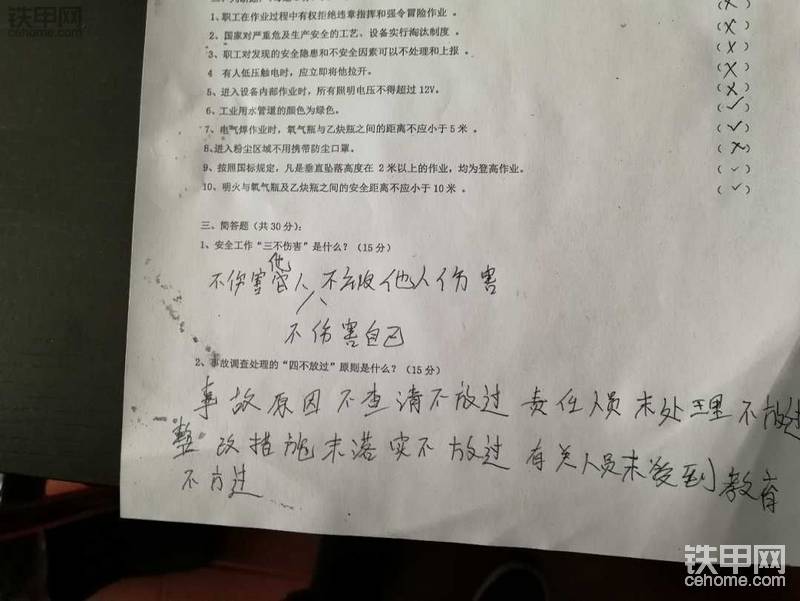 铁甲网
cehome.com
1、职工在作业过程中有权拒绝违章指挥和强令冒险作业。 (×)
2、国家对严重危及生产安全的工艺、设备实行淘汰制度。 (×)
3、职工对发现的安全隐患和不安全因素可以不处理和上报。 (×)
4 有人低压触电时，应立即将他拉开。 (×)
5、进入设备内部作业时，所有照明电压不得超过 12V。 (×)
6、工业用水管道的颜色为绿色。 (✓)
7、电气焊作业时，氧气瓶与乙炔瓶之间的距离不应小于 5 米。 (✓)
8、进入粉尘区域不用携带防尘口罩。 (×)
9、按照国标规定，凡是垂直坠落高度在 2 米以上的作业，均为登高作业。 (✓)
10、明火与氧气瓶及乙炔瓶之间的安全距离不应小于 10 米。 (✓)
三、简答题（共 30 分）：
1、安全工作“三不伤害”是什么？（15 分）
他
不伤害 人 不被他人伤害
不伤害自己
2、事故调查处理的“四不放过”原则是什么？（15 分）
事故原因不查请不放过 责任人员未处理不放过
整改措施未落实不放过 有关人员未受到教育
不方过
铁甲网
cehome.com